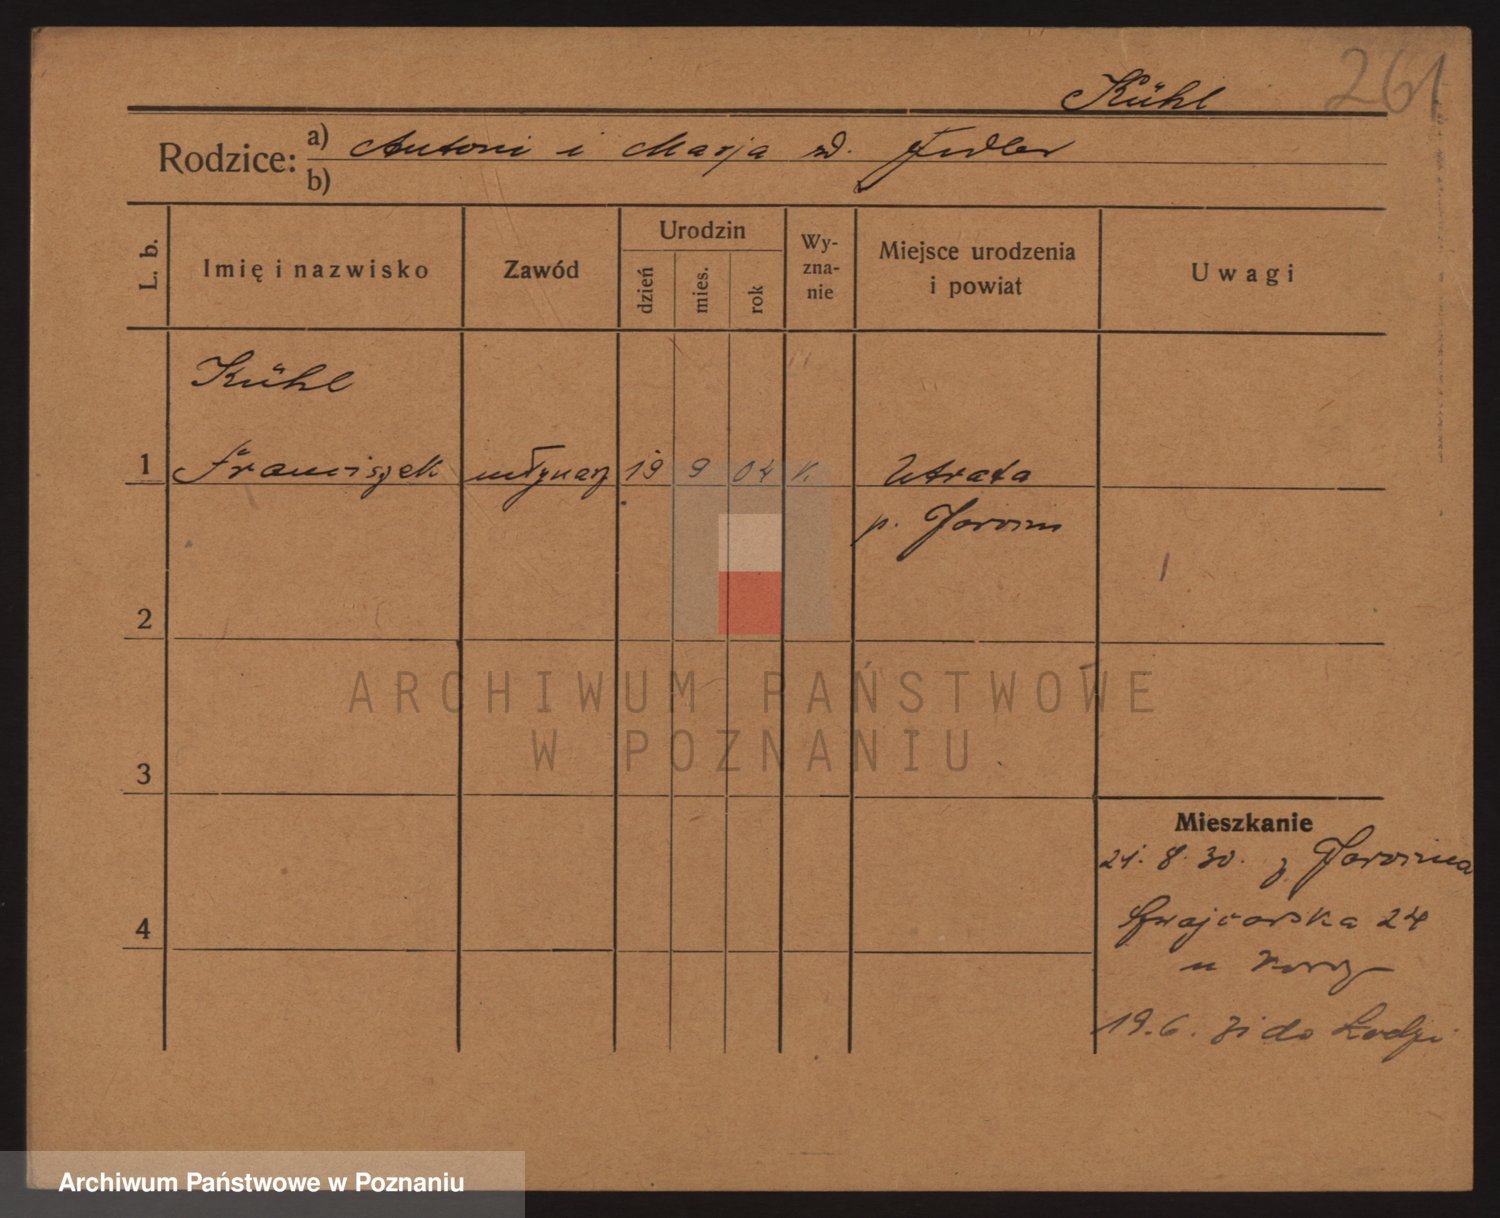 261
Kühl
Rodzice: a) Antoni i Marja zd. Fidler
b)
L. b. Imię i nazwisko Zawód Urodzin dzień mies. rok Wy-zna-nie Miejsce urodzenia i powiat Uwagi
Kühl
1 Franciszek młynarz 19 9 04 k. Utrata
p. Jarocin
2
ARCHIWUM PAŃSTWOWE
W POZNANIU
3
Mieszkanie
21. 8. 30. z Jarocina
4
Szwajcarska 24
u
19. 6. 31 do Łodzi
Archiwum Państwowe w Poznaniu